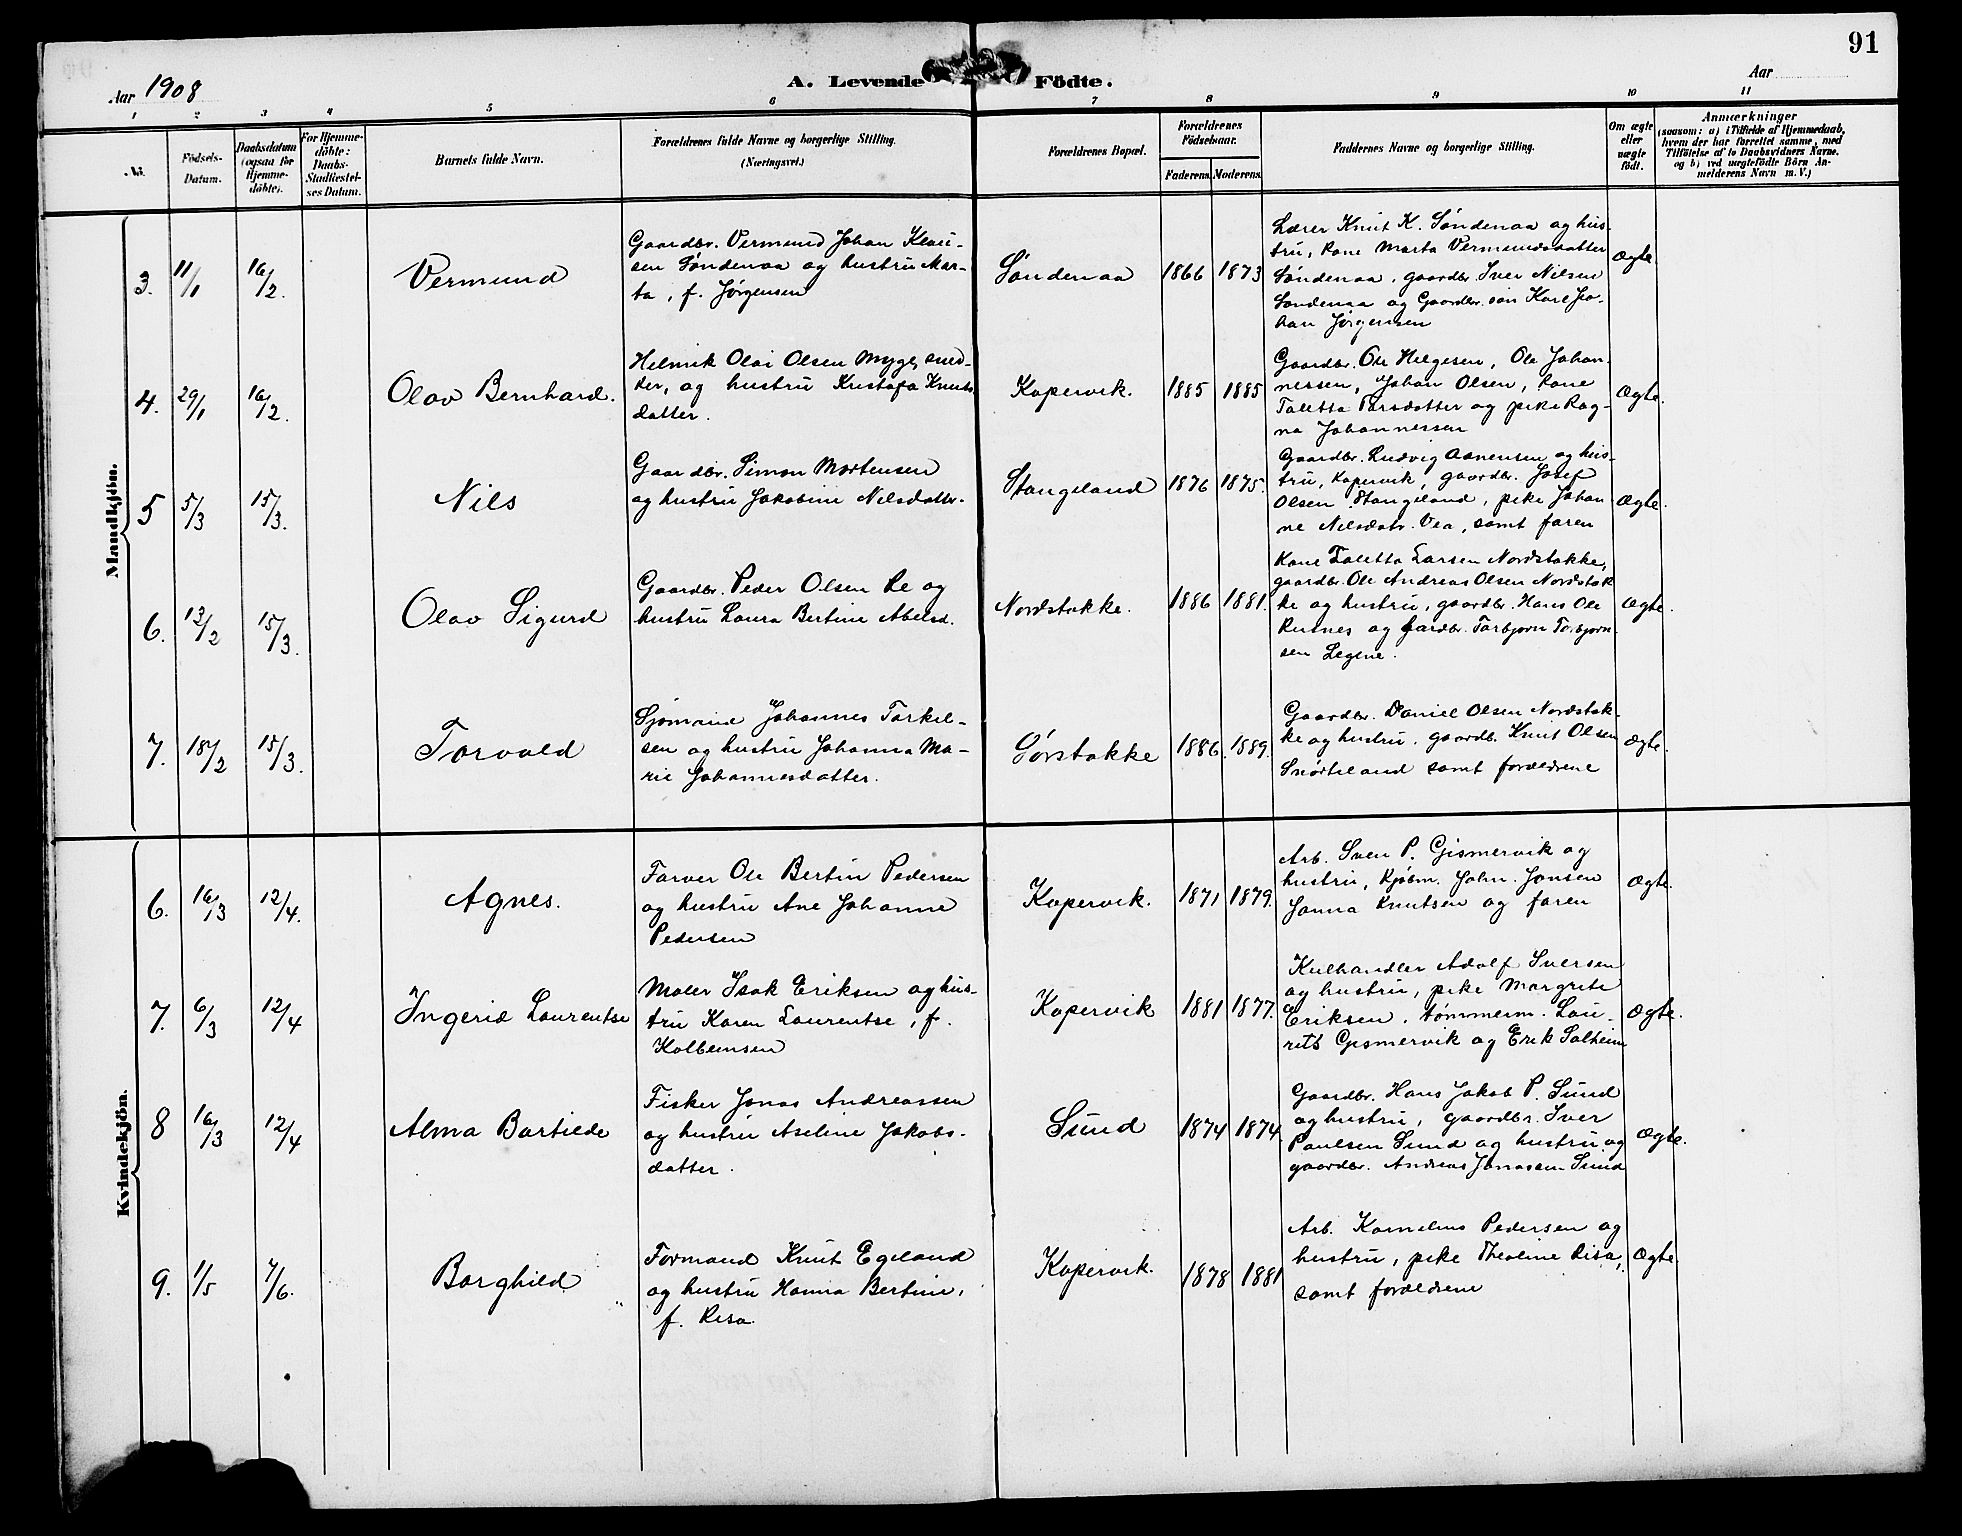 91
Aar 1908
A. Levende Födte.
Aar
1 2 3 4 5 6 7 8 9 10 11
No.
Födsels-
Datum.
Daabsdatum
(ogsaa for
Hjemme-
døbte).
For Hjemme-
døbte:
Daabs-
Stadfæstel-
ses Datum.
Barnets fulde Navn.
Forældrenes fulde Navne og borgerlige Stilling.
(Næringsvei.)
Forældrenes Bopæl.
Forældrenes
Födselsaar.
Faderens. Moderens.
Faddernes Navne og borgerlige Stilling.
Om ægte
eller
uægte
født.
Anmærkninger
(saasom: a) i Tilfælde af Hjemmedaab,
hvem der har forrettet samme, med
Tilföielse af to Daabsvidners Navne.
og b) ved uægtefödte Börn An-
melderens Navn m. V.)
Mandkjön.
3. 11/1 16/2. Vermund
Gaardbr. Vermund Johan Klau-
sen Søndenaa og hustru Mar-
ta, f. Jørgensen
Søndenaa 1866 1873
Lærer Knut K. Søndenaa og hus-
tru, kone Marta Vermundsdatter
Søndenaa, gaardbr. Iver Nilsen
Søndenaa og Gaardbr. søn Karl Jo-
han Jørgensen
Ægte
4. 29/1 16/2. Olav Bernhard.
Helmik Olai Olsen Myge, smed-
der, og hustru Kristofa Knuts-
datter.
Kopervik. 1885 1885
Gaardbr. Ole Helgesen, Ole Johan-
nessen, Johan Olsen, kone
Taletta Larsdatter og pike Rag-
na Johannessen
Ægte.
5 5/3 15/3. Nils
Gaardbr. Simon Mortensen
og hustru Jakobine Nilsdatter.
Stangeland 1876 1875.
Gaardbr. Ludvig Aanensen og hus-
tru, Kopervik, gaardbr. Josef
Olsen Stangeland, pike Johan-
ne Nilsdatr. Vea, samt faren
Ægte.
6. 12/2 15/3. Olav Sigurd
Gaardbr. Peder Olsen Re og
hustru Laura Bertine Abelsd.
Nordstokke. 1886 1881.
Kone Taletta Larsen Nordstokke,
gaardbr. Ole Andreas Olsen Nordstok
ke og hustru, gaardbr. Hans Ole
Rusnes og gardbr. Torbjørn Torbjørn-
sen Legene.
Ægte.
7. 18/2 15/3. Torvald
Sjømand Johannes Torkel-
sen og hustru Johanna Ma-
rie Johannesdatter.
Sørstokke 1886. 1889.
Gaardbr. Daniel Olsen Nordstok-
ke og hustru, gaardb. Knut Olsen
Snørteland samt forældrene
Ægte.
Kvindekjön.
6. 16/3 12/4. Agnes.
Farver Ole Bertin Pedersen
og hustru Ane Johanne
Pedersen
Kopervik. 1871 1879.
Arb. Sven P. Gismervik og
hustru, Kjøbm. John. Jonsen
Janna Knutsen og faren
Ægte.
7. 6/3 12/4 Ingerid Laurentse
Maler Isak Eriksen og hus-
tru Karen Laurentse, f.
Kolbensen
Kopervik 1881 1877.
Kulhandler Adolf Iversen
og hustru, pike Margrete
Eriksen, tømmerm. Lau-
rits Gismervik og Erik Solheim
Ægte.
8 16/3 12/4 Alma Bertilde
Fisker Jonas Andreassen
og hustru Aseline Jakobs-
datter.
Sund 1874 1874.
Gaardbr. Hans Jakob P. Sund
og hustru, gaardbr. Iver
Paulsen Sund og hustru og
gaardbr. Andreas Jonassen Sund
Ægte.
9. 1/5 7/6. Borghild
Formand Knut Egeland
og hustru Hanna Bertine,
f. Risa
Kopervik. 1878 1881
Arb. Kornelius Pedersen og
hustru, pike Theoline Risa,
samt forældrene
Ægte.